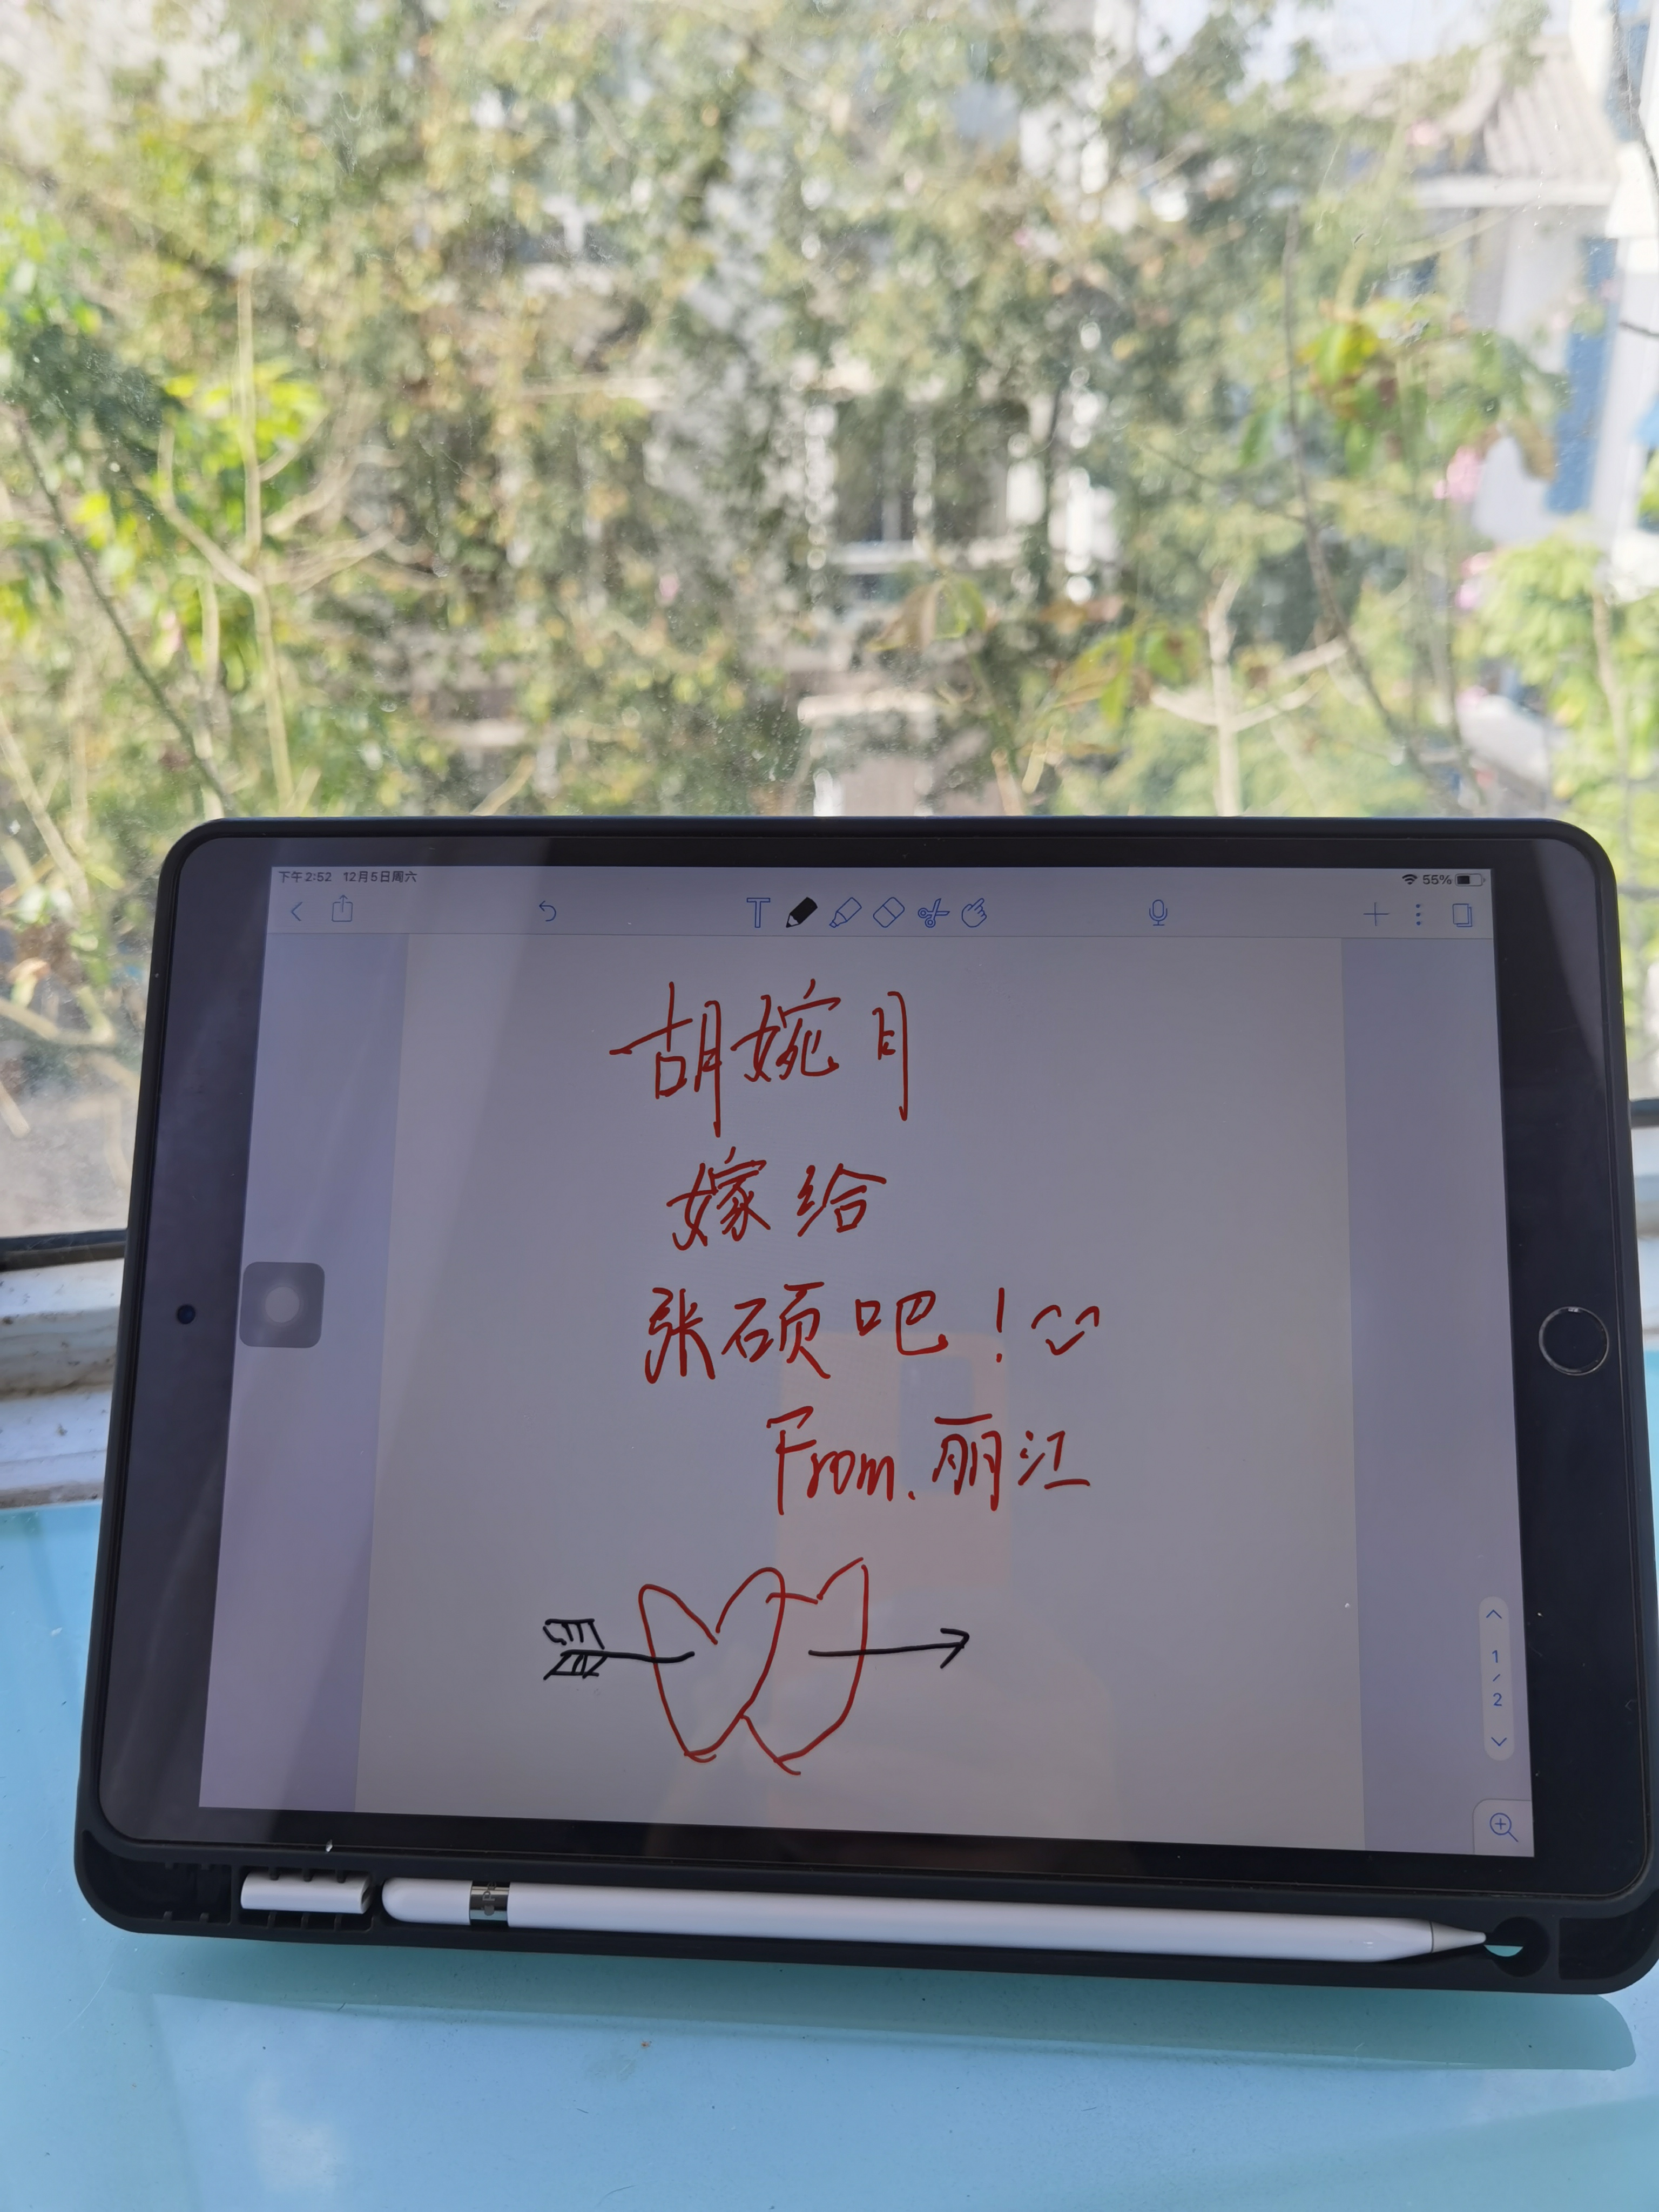 下午2:52 12月5日周六
55%
胡婉月
嫁给
张硕吧!
From.丽江
1
/
2